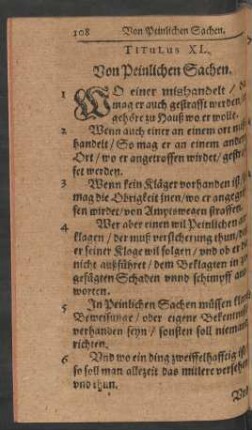 108 Von Peinlichen Sachen.
TITULUS XI.
Von Peinlichen Sachen.
1 WO einer mishandelt /
mag er auch gestrafft werden
gehöre zu Hauß wo er wolle.
2 Wenn auch einer an einem ort
handelt / So mag er an einem andern
Ort / wo er angetroffen wirdet /
set werden.
3 Wenn kein Kläger vorhanden ist /
mag die Obrigkeit jnen / wo er
fen wirdet / von Amptswegen straffen
4 Wer aber einen wil Peinlichen
klagen / der muß versicherung thun /
er seiner Klage wil folgen / und ob er
nicht außführet / dem Beklagten in
gefügten Schaden vnnd schimpff
worten.
5 In Peinlichen Sachen müssen
Beweisunge / oder eigene Bekentnuß
verhanden seyn / sonsten soll niemand
richten.
6 Und wo ein ding zweiffelhafftig ist
so soll man allezeit das miltere versehen
vnd thun.